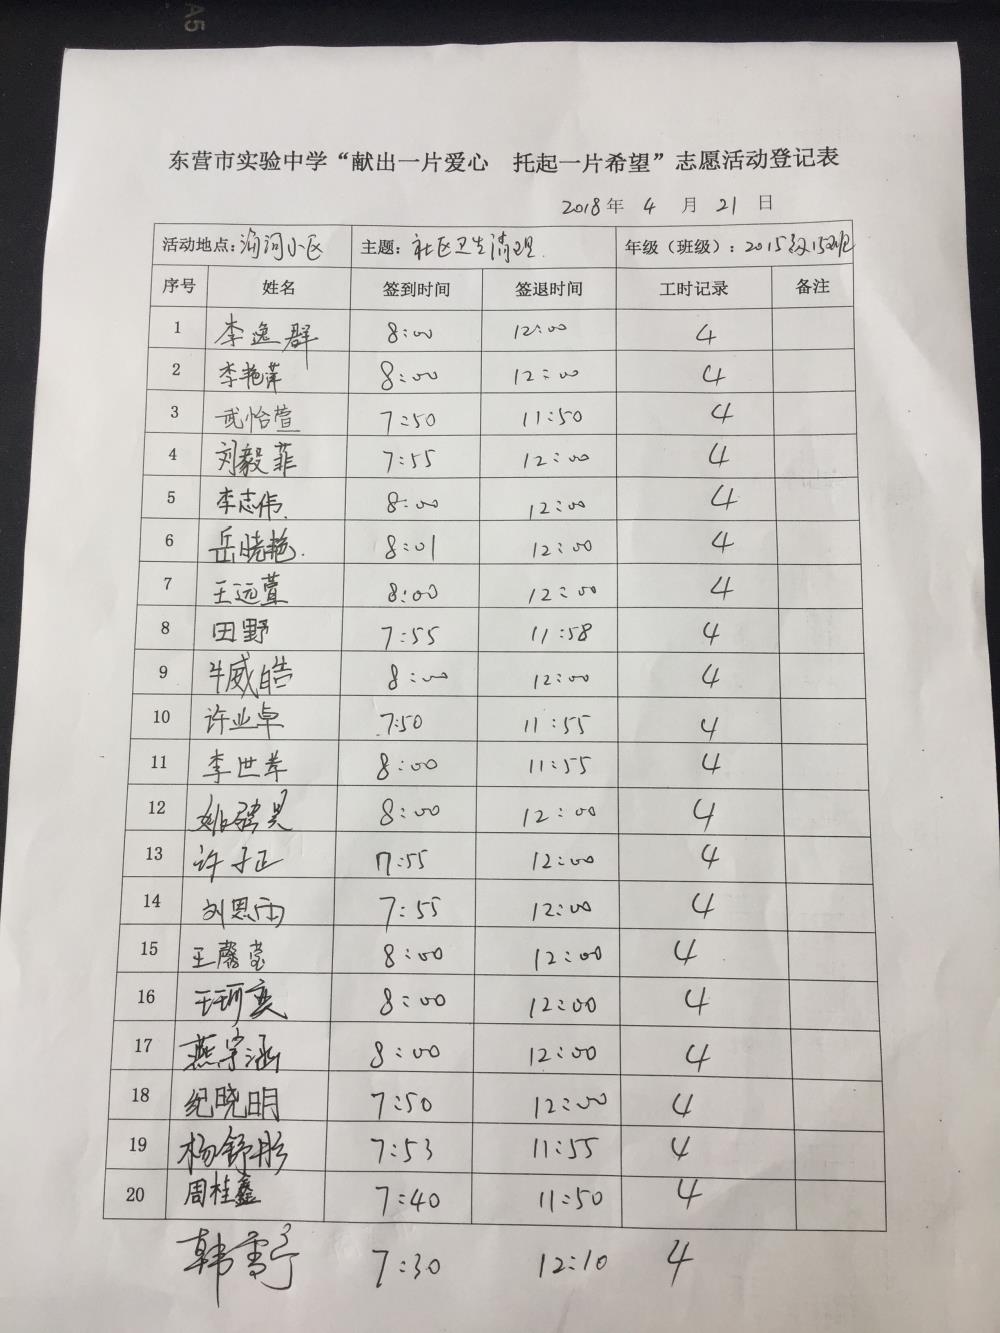 A5
东营市实验中学“献出一片爱心 托起一片希望”志愿活动登记表
2018年 4 月 21 日
活动地点: 小区 主题: 社区卫生清理 年级（班级）: 2015级15班
序号 姓名 签到时间 签退时间 工时记录 备注
1 李逸群 8:00 12:00 4
2 李艳萍 8:00 12:00 4
3 武怡萱 7:50 11:50 4
4 刘毅菲 7:55 12:00 4
5 李志伟. 8:00 12:00 4
6 岳晓艳. 8:01 12:00 4
7 王远萱 8:00 12:00 4
8 田野 7:55 11:58 4
9 牛威皓 8:00 12:00 4
10 许业卓 7:50 11:55 4
11 李世 8:00 11:55 4
12 姚 昊 8:00 12:00 4
13 许子正 7:55 12:00 4
14 刘恩雨 7:55 12:00 4
15 王馨莹 8:00 12:00 4
16 王珂奕 8:00 12:00 4
17 燕宇涵 8:00 12:00 4
18 纪晓明 7:50 12:00 4
19 杨舒彤 7:53 11:55 4
20 周桂鑫 7:40 11:50 4
韩雪宁 7:30 12:10 4